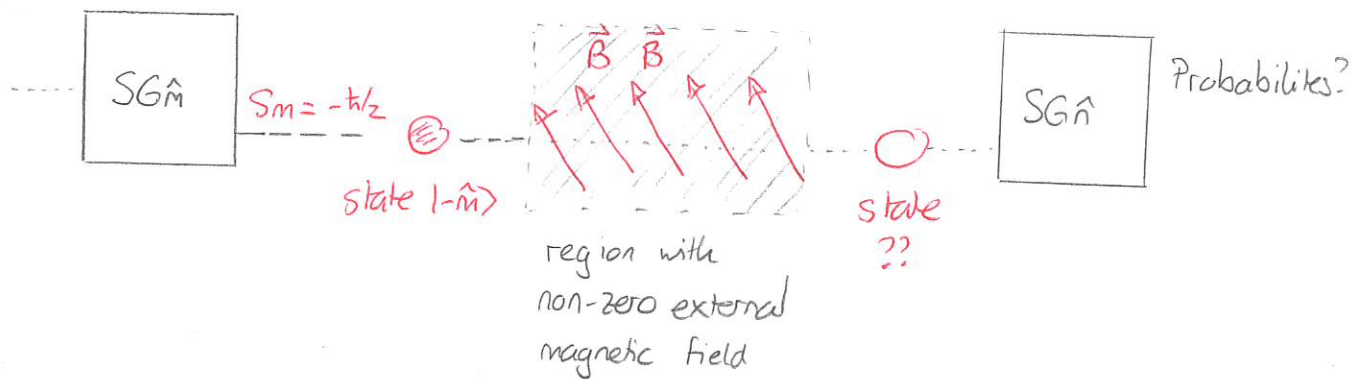 SGm̂
Sm = -ħ/2
state |-m̂>
B⃗ B⃗
region with
non-zero external
magnetic field
state
??
SGn̂
Probabilites?